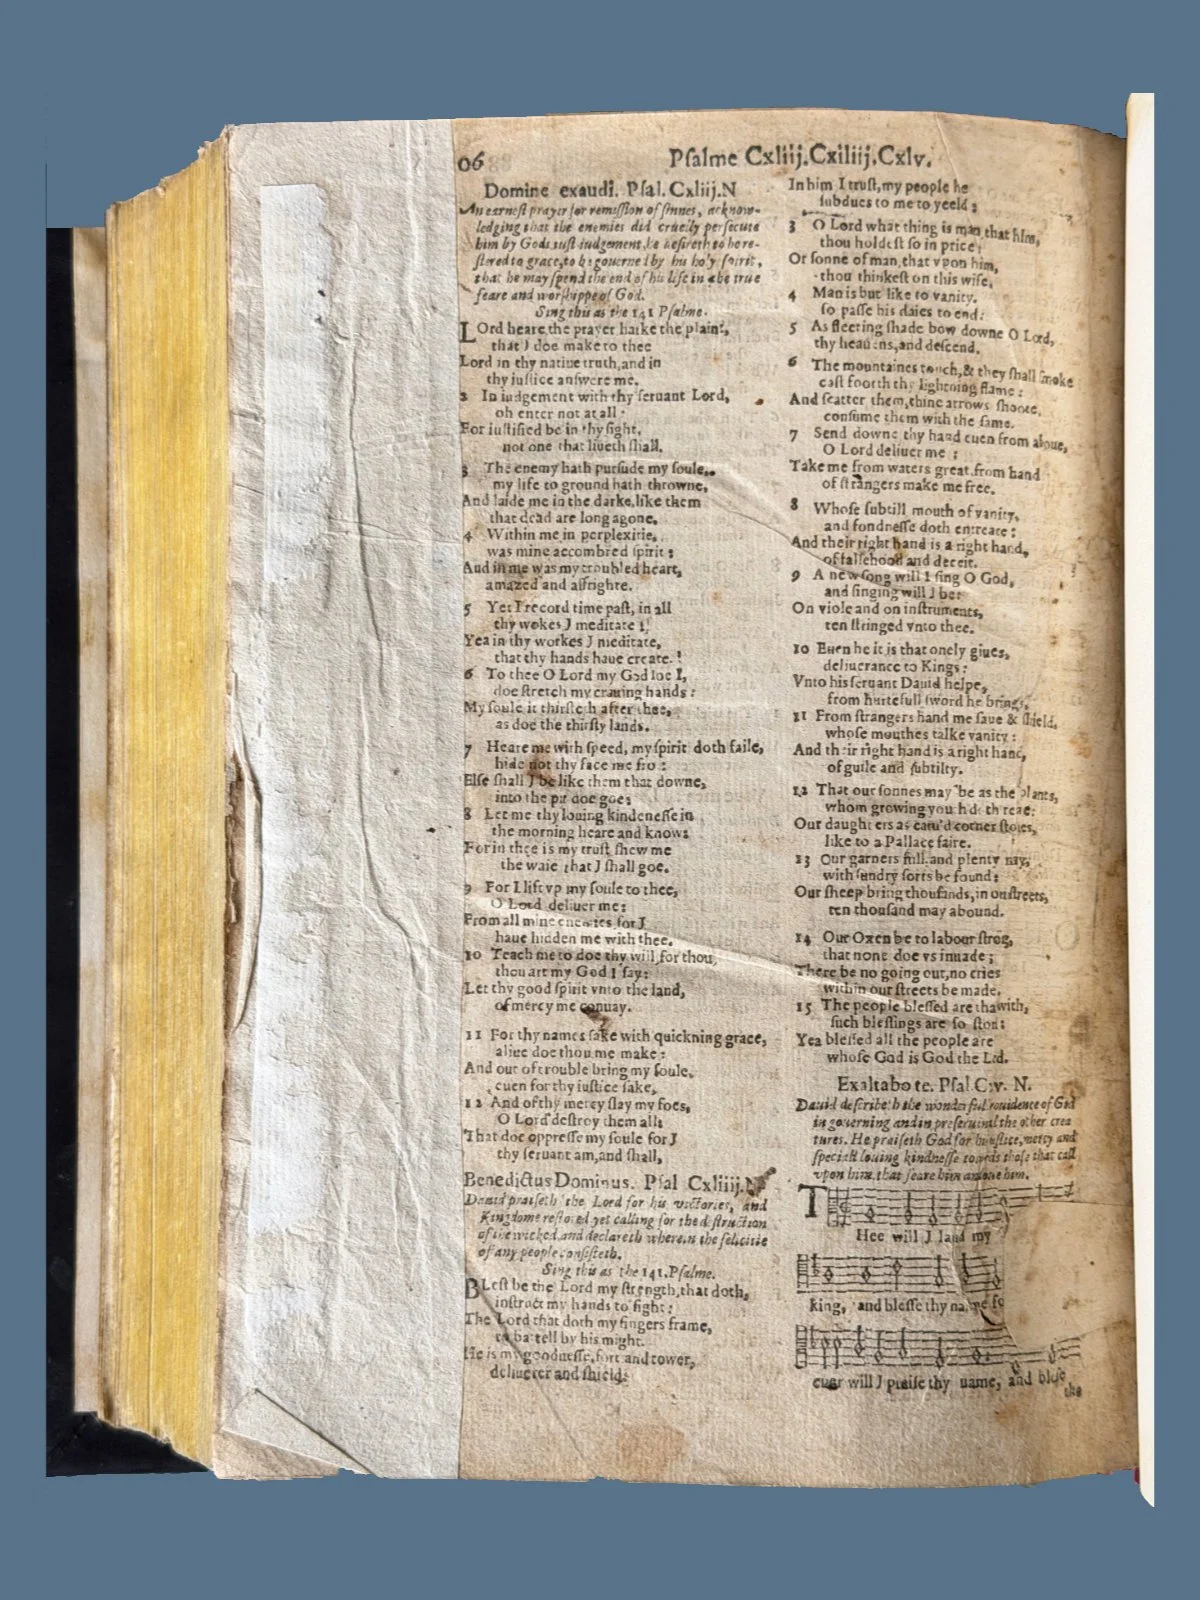 06
Psalme Cxliij.Cxliiij.Cxlv.
Domine exaudi. Psal. Cxliij. N
An earnest prayer for remission of sinnes, acknow-
ledging that the enemies did cruelly persecute
him by Gods iust iudgement, he desireth to be re-
stored to grace, to be gouerned by his holy spirit,
that he may spend the end of his life in the true
feare and worshippe of God.
Sing this as the 141 Psalme.
LOrd heare, the prayer harke the plaint,
that J doe make to thee
Lord in thy natiue truth, and in
thy iustice answere me.
2 In iudgement with thy seruant Lord,
oh enter not at all:
For iustified be in thy sight,
not one that liueth shall.
3 The enemy hath pursude my soule,
my life to ground hath throwne,
And laide me in the darke, like them
that dead are long agone.
4 Within me in perplexitie,
was mine accombred spirit:
And in me was my troubled heart,
amazed and affrighte.
5 Yet I record time past, in all
thy wokes J meditate
Yea in thy workes J meditate,
that thy hands haue create.
6 To thee O Lord my God loe I,
doe stretch my crauing hands:
My soule it thirsteth after thee,
as doe the thirsty lands.
7 Heare me with speed, my spirit doth faile,
hide not thy face me fro:
Else shall J be like them that downe,
into the pit doe goe:
8 Let me thy louing kindenesse in
the morning heare and know:
For in thee is my trust shew me
the waie that J shall goe.
9 For I lift vp my soule to thee,
O Lord deliuer me:
From all mine enemies for J
haue hidden me with thee.
10 Teach me to doe thy will, for thou,
thou art my God I say:
Let thy good spirit vnto the land,
of mercy me conuay.
11 For thy names sake with quickning grace,
aliue doe thou me make:
And out of trouble bring my soule,
euen for thy iustice sake,
12 And of thy mercy slay my foes,
O Lord destroy them all:
That doe oppresse my soule for J
thy seruant am, and shall,
Benedictus Dominus. Psal Cxliiij. N
Dauid praiseth the Lord for his victories, and
Kingdome restored yet calling for the destruction
of the wicked, and declareth wherein the felicitie
of any people consisteth.
Sing this as the 141. Psalme.
BLest be the Lord my strength, that doth,
instruct my hands to fight:
The Lord that doth my fingers frame,
to battell by his might.
He is my goodnesse, fort and tower,
deliuerer and shield:
In him I trust, my people he
subdues to me to yeeld:
3 O Lord what thing is man, that him,
thou holdest so in price,
Or sonne of man, that vpon him,
thou thinkest on this wise,
4 Man is but like to vanity.
so passe his daies to end:
5 As fleeting shade bow downe O Lord,
thy heauens, and descend.
6 The mountaines touch, & they shall smoke
cast foorth thy lightning flame:
And scatter them, thine arrows shoote,
consume them with the same.
7 Send downe thy hand euen from aboue,
O Lord deliuer me:
Take me from waters great, from hand
of strangers make me free.
8 Whose subtill mouth of vanity,
and fondnesse doth entreate:
And their right hand is a right hand,
of falsehood and deceit.
9 A new song will I sing O God,
and singing will J be:
On viole and on instruments,
ten stringed vnto thee.
10 Euen he it is that onely giues,
deliuerance to Kings:
Vnto his seruant Dauid helpe,
from hurtefull sword he brings,
11 From strangers hand me saue & shield,
whose mouthes talke vanity:
And their right hand is a right hand,
of guile and subtilty.
12 That our sonnes may be as the plants,
whom growing youth doth reare:
Our daughters as caru'd corner stones,
like to a Pallace faire.
13 Our garners full, and plenty may,
with sundry sorts be found:
Our sheep bring thousands, in our streets,
ten thousand may abound.
14 Our Oxen be to labour strõg,
that none doe vs inuade;
There be no going out, no cries
within our streets be made.
15 The people blessed are that with,
such blessings are so stor:
Yea blessed all the people are
whose God is God the Lord.
Exaltabo te. Psal. Cxlv. N.
Dauid describeth the wonderful prouidence of God
in gouerning and in preseruing all the other crea
tures. He praiseth God for his iustice, mercy and
speciall louing kindnesse towards those that call
vpon him, that feare him and loue him.
THee will J laud my
king, and blesse thy name for
euer will J praise thy name, and blesse
the